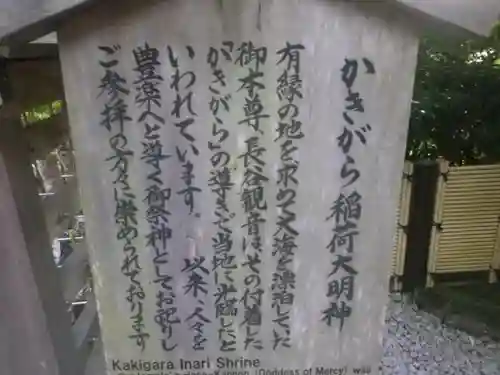 かきがら稲荷大明神
有縁の地を求めて大海を漂泊していた
御本尊、長谷観音は、その付着した
「かきがら」の導きで当地に光臨したと
いわれています。 以来、人々を
豊楽へと導く御祭神としてお祀りし
ご参拝の方々に崇められております
Kakigara Inari Shrine
Kannon (Goddess of Mercy) was